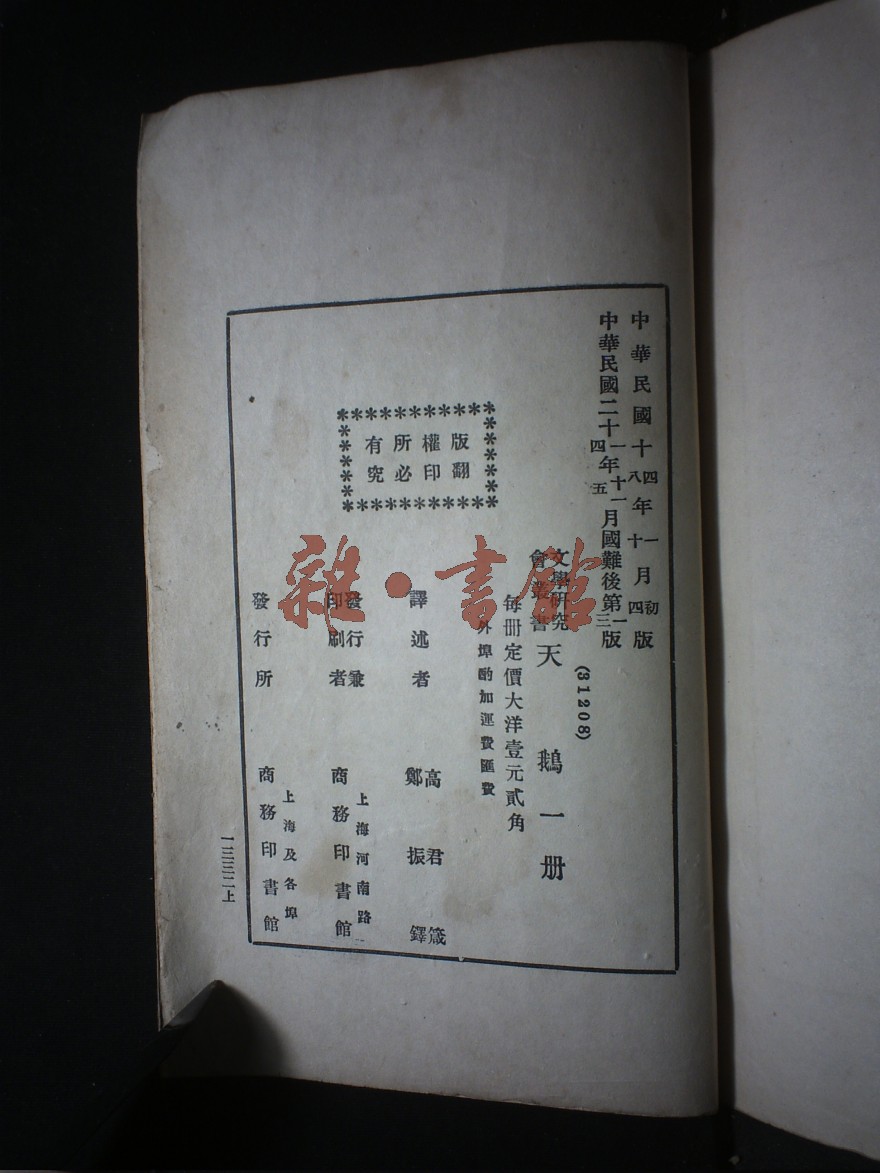 中華民國十四八年一十月初四版
中華民國二十一四年十一五月國難後第一三版
(31208)
文學研究會叢書 天鵝一册
每册定價大洋壹元貳角
外埠酌加運費匯費
版權所有
翻印必究
譯述者 高君箴 鄭振鐸
發行兼印刷者 上海河南路 商務印書館
發行所 上海及各埠 商務印書館
雜·書館